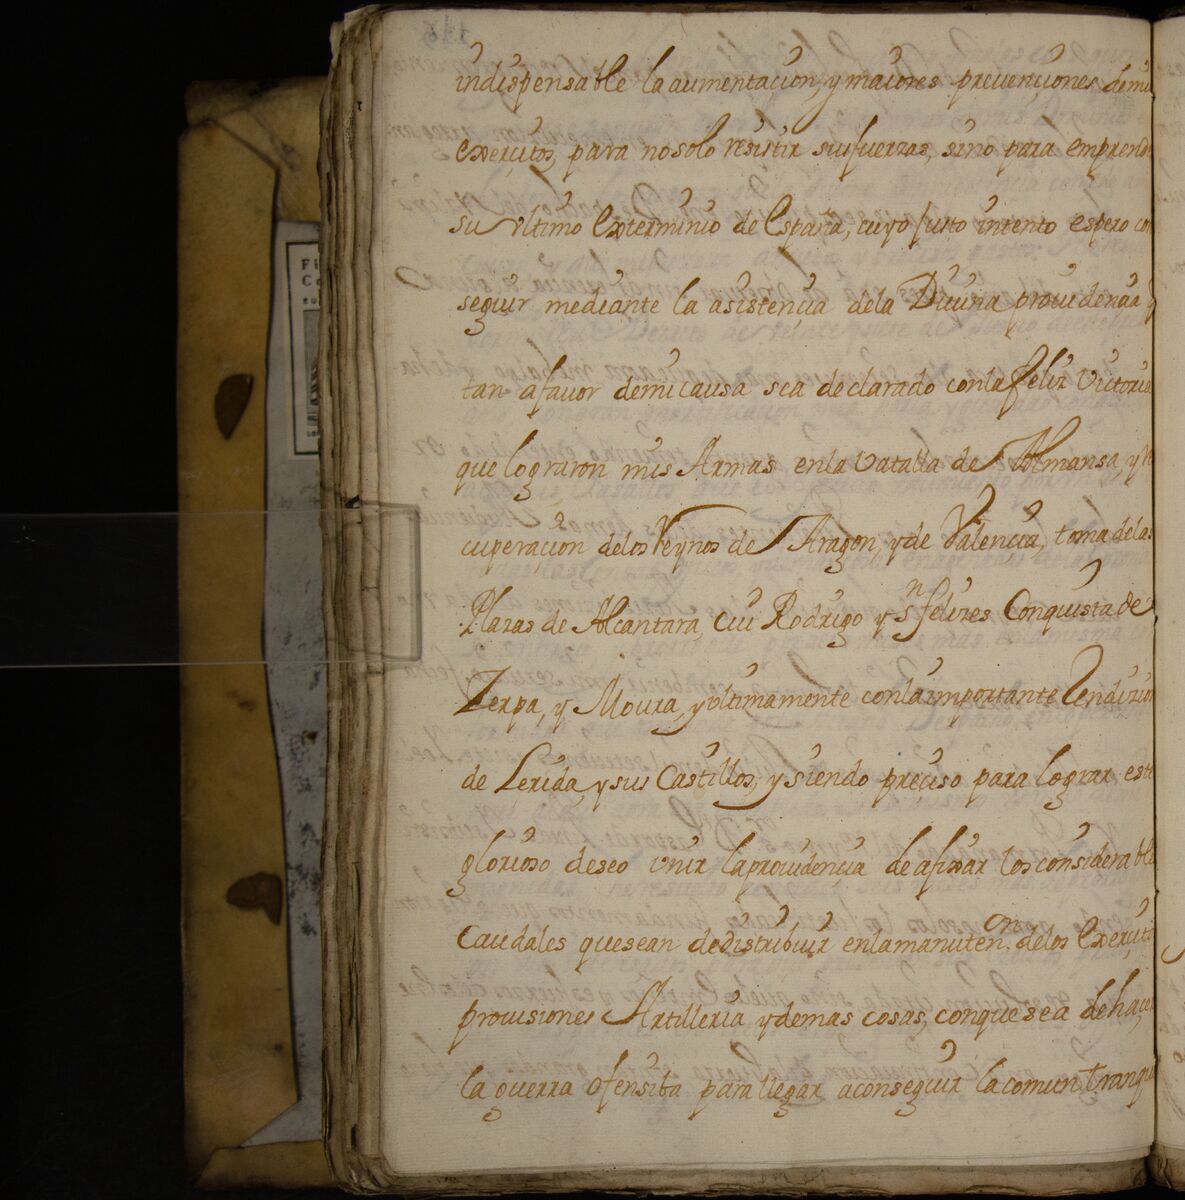 indispensable la aumentaçion, y maiores preuençiones demis
exerçitos, para no solo resistir sus fuerzas, sino para emprend
su vltimo exterminio de España, cuyo justo intento espero con
seguir mediante la asistençia dela Diuina prouidençia q
tan afauor demi causa sea declarado conla feliz Victoria
que lograron mis Armas enla vatalla de Almansa, y re
cuperaçion delos Reynos de Aragon, y de Valençia, toma delas
Plazas de Alcantara, Ciu Rodrigo y sn felizes Conquista de
Zerpa, y Moura, y vltimamente conla importante Rendizion
de Lerida, y sus Castillos, y siendo preçiso para lograr este
glorioso deseo vnir la prouidençia de afixar los considerable
Caudales que sean de distribuir enla manutenon delos Exerçitos
prouisiones Artilleria y demas cosas, conque sea de haçer
la guerra ofensiba para llegar a conseguir la comun tranqui